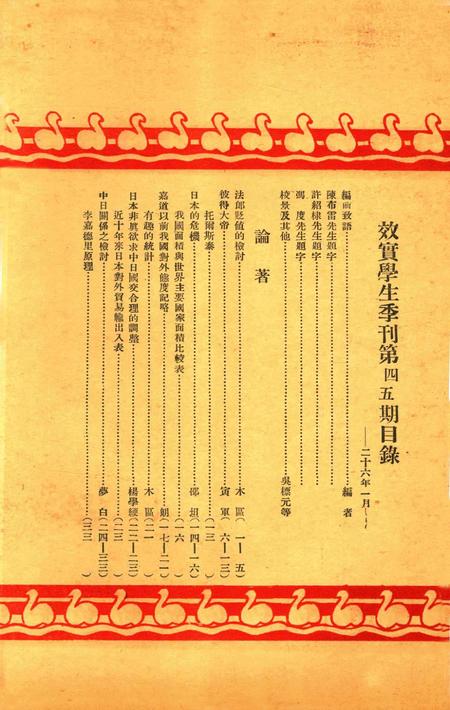 效實學生季刊第四五期目錄
——二十六年一月——
編前致語……編者
陳布雷先生題字……
許紹棣先生題字……
弼度先生題字……
校景及其他……吳標元等
論著
法郎貶值的檢討……木區(一—五)
彼得大帝……寅軍(六—一三)
托爾斯泰……(一三)
日本的危機……邵垣(一四—一六)
我國面積與世界主要國家面積比較表……(一六)
嘉道以前我國對外態度記略……(一七—二一)
有趣的統計……木區(二一)
日本非眞欲求中日國交合理的調整……楊學縵(二二—二三)
近十年來日本對外貿易輸出入表……(二三)
中日關係之檢討……夢白(二四—三三)
李嘉德里原理……(三三)